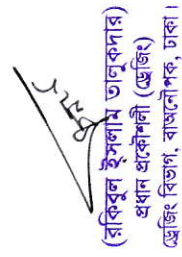 (রকিবুল ইসলাম তালুকদার)
প্রধান প্রকৌশলী (ড্রেজিং)
ড্রেজিং বিভাগ, বাঅনৌপক, ঢাকা।